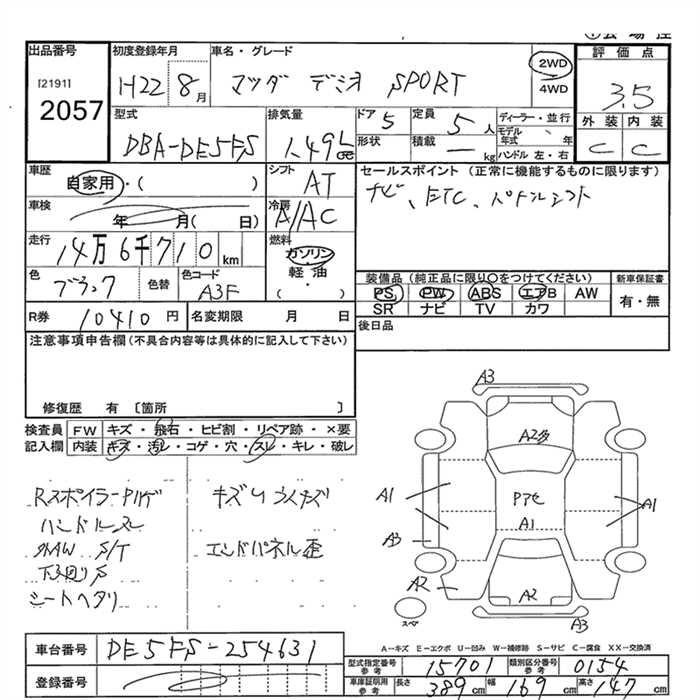 出品番号 初度登録年月 車名・グレード 評価点
[2191] H22 8月 マツダ デミオ SPORT 2WD 3.5
2057 4WD
型式 排気量 ドア 5 定員 5人 ディーラー・並行 外装 内装
DBA-DE5FS 1.49L 形状 積載 ー kg モデル 年式 年 C C
cc ハンドル 左・右
車歴 シフト セールスポイント (正常に機能するものに限ります)
自家用・( ) AT ナビ、ETC、パドルシフト
車検 年 月(日) 冷房 A/AC
走行 燃料
14万6千710km ガソリン
軽・油
色 ブラック 色替 色コード A3F ・( ) 装備品(純正品に限り○をつけてください) 新車保証書
PS PW ABS エアB AW 有・無
R券 10410円 名変期限 月 日 SR ナビ TV カワ
注意事項申告欄(不具合内容等は具体的に記入して下さい) 後日品
修復歴 有 〔箇所 〕
検査員 FW キズ・飛石・ヒビ割・リペア跡・×要
記入欄 内装 キズ・汚レ・コゲ・穴・スレ・キレ・破レ
A3
A2多
Rスポイラー キズ A1 Pアセ A1
ハンドルスレ A1
AW S/T エンドパネル歪 A3
下回りS A2 A2
シートヘタリ スペア A3
A-キズ E-エクボ U-凹み W-補修跡 S-サビ C-腐食 XX-交換済
車台番号 DE5FS-254631
型式指定番号 参考 15701 類別区分番号 参考 0154
登録番号 車庫証明用 参考 長さ 389cm 幅 169cm 高さ 147cm